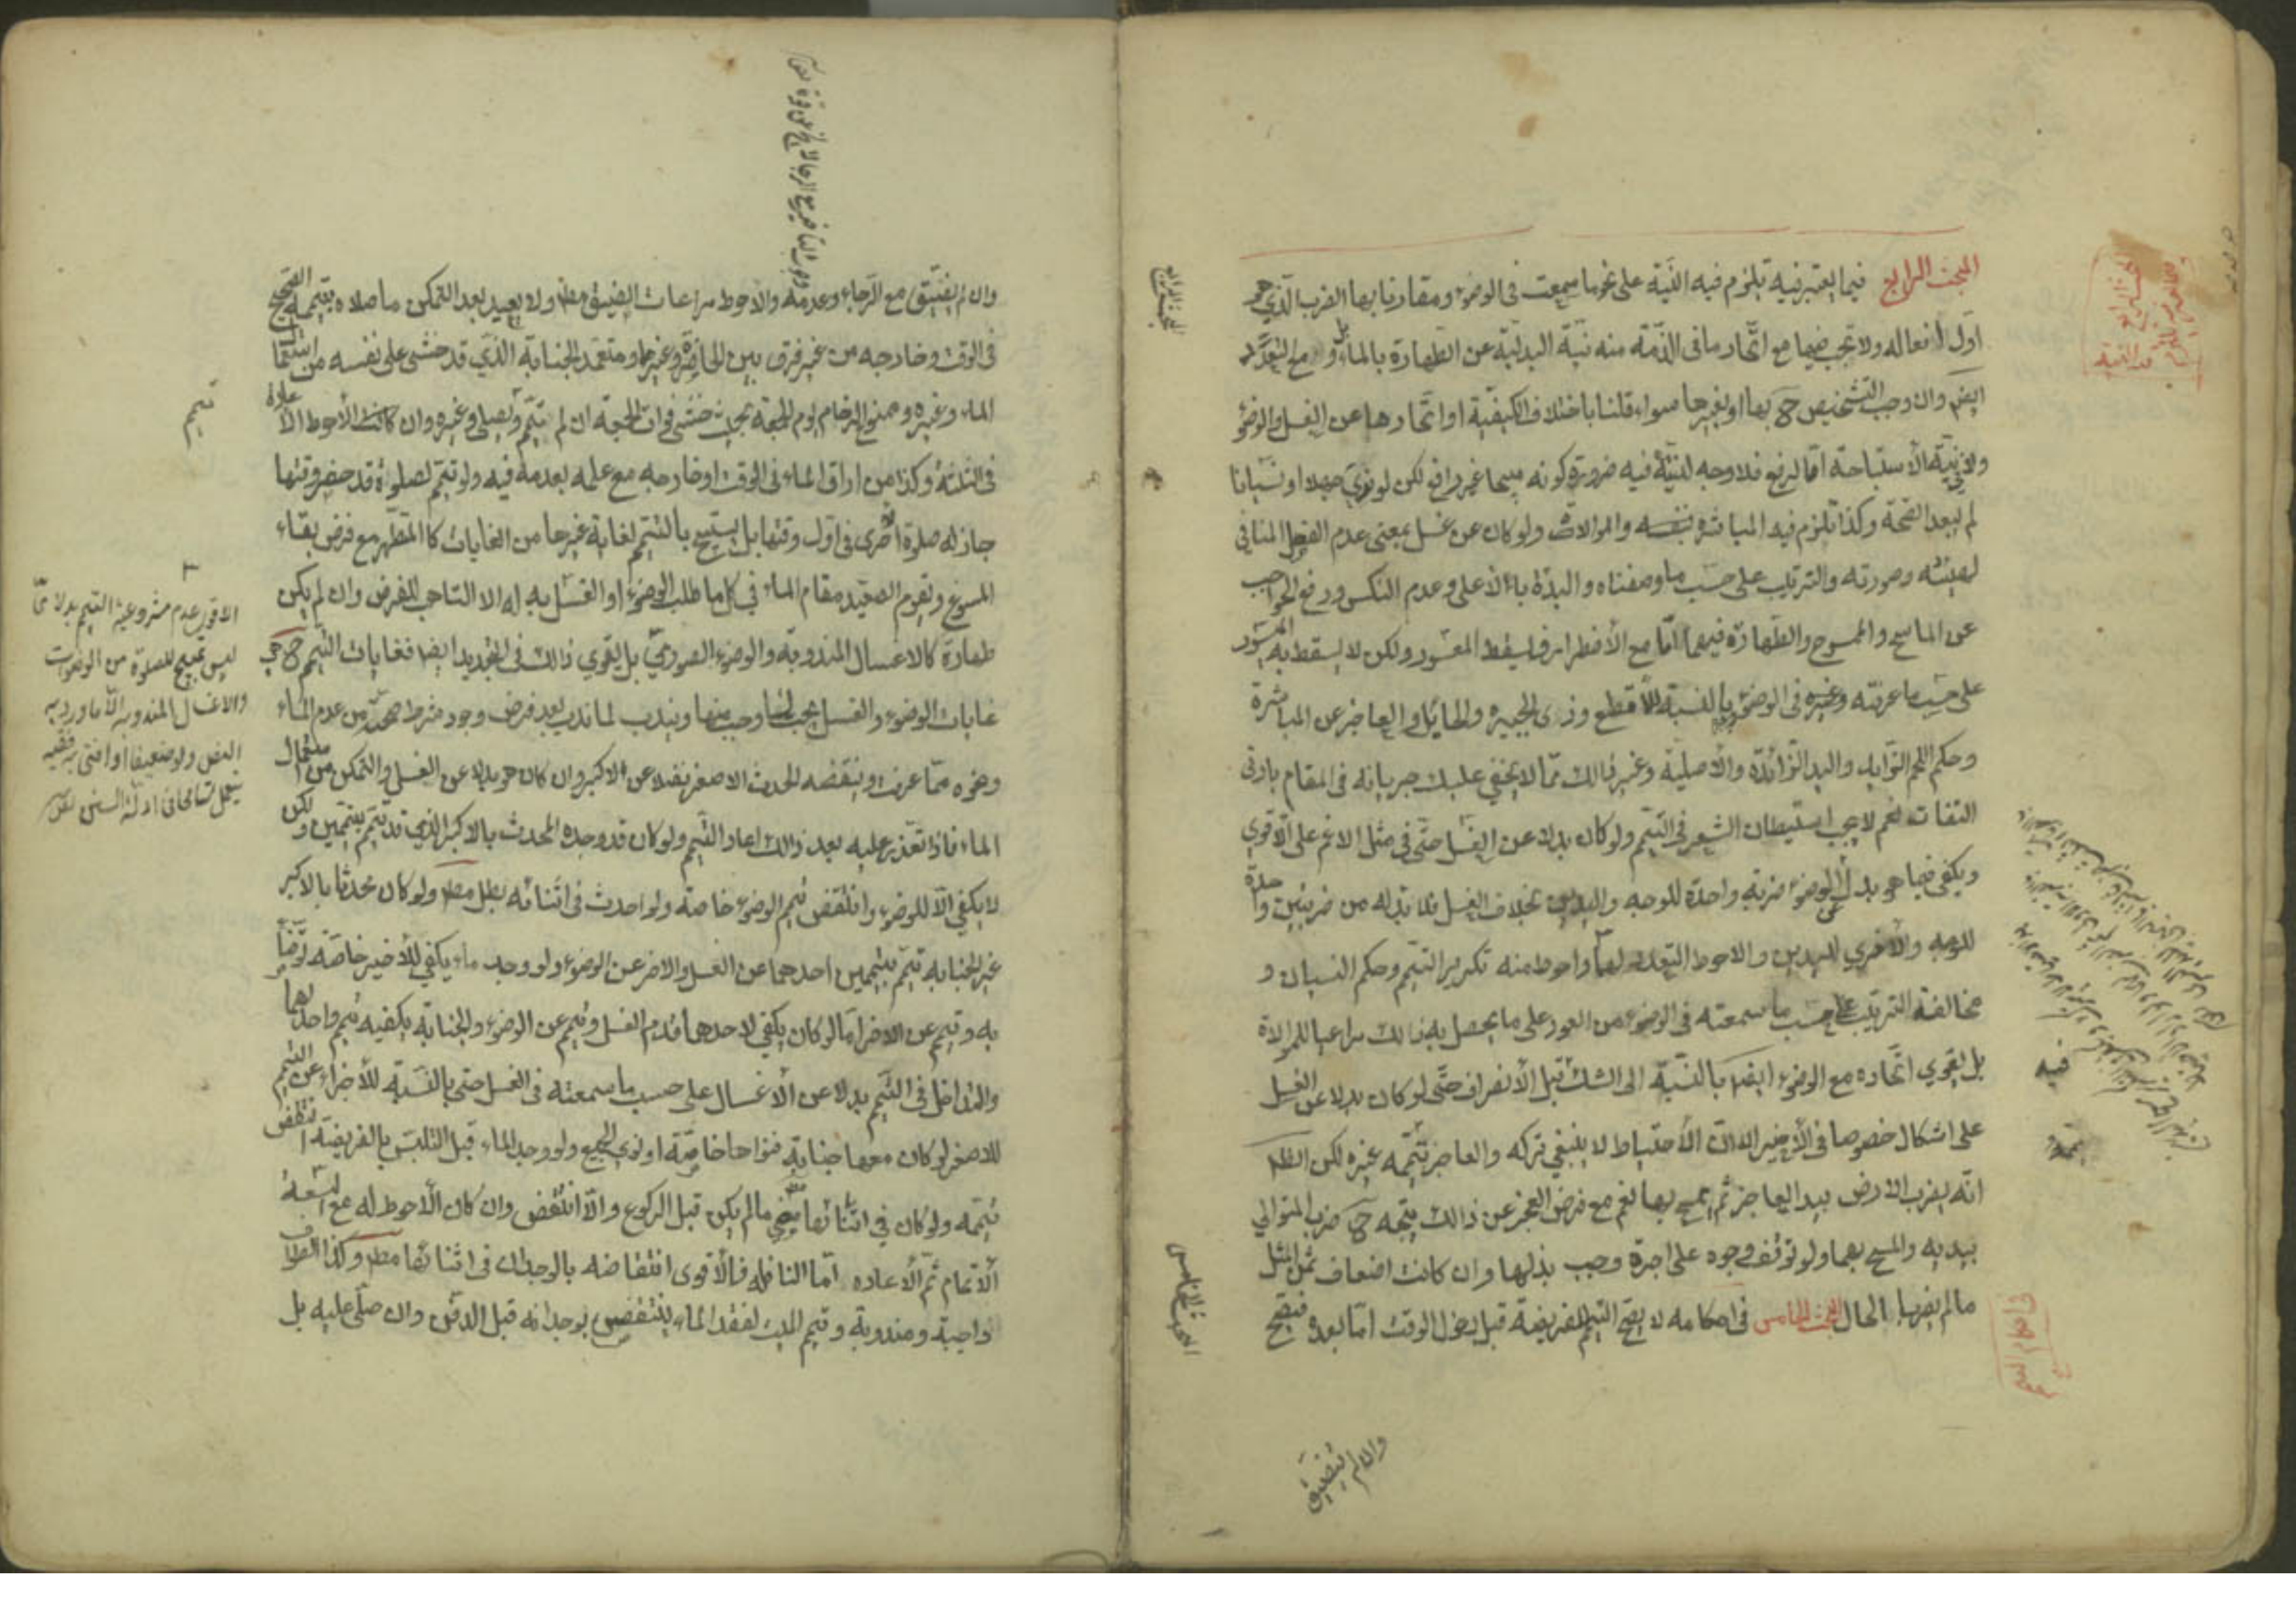 المبحث الرابع فيما يعتبر فيه تلزم فيه النية على نحو ما سمعت فى الوضوء ومقارنا بها الضرب الذي هو
اول افعاله ولا تجب فيها مع اتحاد ما فى الذمة منه نية البدلية عن الطهارة بالماء بل ولا مع التعدد
ايضا وان وجب التشخيص ح بها او بغيرها سواء قلنا باختلاف الكيفية او اتحادها عن الغسل والوضوء
ونية الاستباحة اما الرفع فلا وجه لنيته فيه ضرورة كونه مبيحا غير رافع لكن لو نوى جهلا او نسيانا
لم يبعد الصحة وكذا تلزم فيه المباشرة بنفسه والموالات ولو كان عن غسل بمعنى عدم الفصل المنافي
لهيئته وصورته والترتيب على حسب ما وصفناه والبدئة بالاعلى وعدم النكس ورفع الحاجب
عن الماسح والممسوح والطهارة فيهما اما مع الاضطرار فيسقط المعسور ولكن لا يسقط به الميسور
على حسب ما عرفته وغيره فى الوضوء بالنسبة للاقطع وذى الجبيره والحايل والعاجز عن المباشرة
وحكم اللحم الزايد واليد الزائدة والاصلية وغير ذالك مما لا يخفي عليك جريانه فى المقام بادنى
التفات نعم لا يجب استبطان الشعر في التيمم ولو كان بدلا عن الغسل حتى في مثل الاغم على الاقوى
ويكفى فيما هو بدل عن الوضوء ضربة واحدة للوجه واليدين بخلاف الغسل فلا بد له من ضربتين واحدة
للوجه والاخري لليدين والاحوط التعدد لهما واحوط منه تكرير التيمم وحكم النسيان و
مخالفة الترتيب على حسب ما سمعته فى الوضوء من العود على ما يحصل به ذالك مراعيا للموالاة
بل يقوي اتحاده مع الوضوء ايضا بالنسبة الى الشك قبل الانصراف حتى لو كان بدلا عن الغسل
على اشكال خصوصا فى الاخير الا ان الاحتياط لا ينبغي تركه والعاجز يتممه غيره لكن الظاهر
انه يضرب الارض بيد العاجز ثم يمسح بها نعم مع فرض العجز عن ذالك يتجه ح ضرب المتولي
بيديه والمسح بهما ولو توقف وجوده على اجرة وجب بذلها وان كانت اضعاف ثمن المثل
ما لم يضر بالحال المبحث الخامس فى احكامه لا يصح التيمم للفريضة قبل دخول الوقت اما بعده فيصح
وان لم يتضيق
فيه
المبحث الرابع
المبحث الخامس
وان لم يتضيق مع الرجاء وعدمه والاحوط مراعات الضيق مطلقا ولا يعيد بعد التمكن ما صلاه بتيممه الصحيح
فى الوقت وخارجه من غير فرق بين الحاضر وغيرها ومتعمد الجنابة الذي قد خشى على نفسه من استعمال
الماء وغيره وممنوع الزحام يوم الجمعة بحيث خشى فوات الجمعة ان لم يتيمم ويصلى وغيره وان كانت الاحوط الاعادة
فى الثلثة وكذا من اراق الماء فى الوقت او خارجه مع علمه بعدمه فيه ولو تيمم لصلوة قد حضر وقتها
جاز له صلوة اخرى فى اول وقتها بل يستبيح بالتيمم لغاية غيرها من الغايات كالمتطهر مع فرض بقاء
المسوغ ويقوم الصعيد مقام الماء في كل ما طلب الوضوء او الغسل به له الا التاهب للفرض وان لم يكن
طهارة كالاغسال المندوبة والوضوء الصوري بل يقوي ذالك فى التجديد ايضا فغايات التيمم ح هى
غايات الوضوء والغسل يجب لما وجب منها ويندب لما ندب بعد فرض وجود شرط صحته من عدم الماء
ونحوه مما عرفت وينقضه الحدث الاصغر فضلا عن الاكبر وان كان هو بدلا عن الغسل والتمكن من استعمال
الماء فاذا تعذر عليه بعد ذالك اعاد التيمم ولو كان قد وجده المحدث بالاكبر الذي قد تيمم بتيممين ولكن
لا يكفي الا للوضوء وانتقض تيمم الوضوء خاصة ولو احدث فى اثنائه بطل مطلقا ولو كان محدثا بالاكبر
غير الجنابة تيمم بتيممين احدهما عن الغسل والاخر عن الوضوء ولو وجد ماء يكفي للاخير خاصة توضأ
به وتيمم عن الاخر اما لو كان يكفي لاحدهما قدم الغسل وتيمم عن الوضوء والجنابة يكفيه تيمم واحد لهما
والتداخل فى التيمم بدلا عن الاغسال على حسب ما سمعته فى الغسل حتى بالنسبة للاجزاء عن التيمم
للاصغر لو كان معها جنابة فنواها خاصة او نوى الجميع ولو وجد الماء قبل التلبس بالفريضة انتقض
تيممه ولو كان في اثنائها يمضي ما لم يكن قبل الركوع والا انتقض وان كان الاحوط له مع السعة
الاتمام ثم الاعاده اما النافله فالاقوى انتقاضه بالوجدان فى اثنائها مطلقا وكذا الطواف
واجبة ومندوبة وتيمم الميت لفقد الماء ينتقض بوجدانه قبل الدفن وان صلى عليه بل
الاقوى عدم مشروعية التيمم بدلا عما
ليس بمبيح للصلوة من الوضوءات
والاغسال المندوبه الا ما ورد به
النص ولو ضعيفا او افتى به فقيه